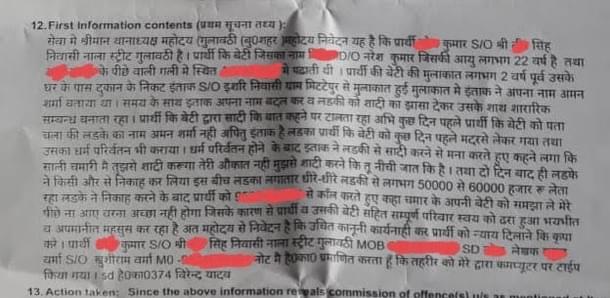 12. First Information contents (प्रथम सूचना तथ्य ):
सेवा मे श्रीमान थानाध्यक्ष महोदय (गुलावठी (बु0शहर )महोदय निवेदन यह है कि प्रार्थी कुमार S/O श्री सिंह
निवासी नाला स्ट्रीट गुलावठी है । प्रार्थी कि बेटी जिसका नाम D/O नरेश कुमार जिसकी आयु लगभग 22 वर्ष है तथा
के पीछे वाली गली मे स्थित मे पढाती थी । प्रार्थी की बेटी की मुलाकात लगभग 2 वर्ष पूर्व उसके
घर के पास दुकान के निकट इंतजाक S/O इशरि निवासी ग्राम मिटटेपुर से मुलाकात हुई मुलाकात मे इंताक ने अपना नाम अमन
शर्मा बताया था । समय के साथ इताक अपना नाम बदल कर व लडकी को शादी का झासा देकर उसके साथ शारारिक
सम्बन्ध बनाता रहा । प्रार्थी कि बेटी द्वारा सादी कि बात कहने पर टालता रहा अभि कुछ दिन पहले प्रार्थी कि बेटी को पता
चला की लडके का नाम अमन शर्मा नही अपितु इंताक है लडका प्रार्थी कि बेटी को कुछ दिन पहले मदरसे लेकर गया तथा
उसका धर्म परिर्वतन भी कराया । धर्म परिर्वतन होने के बाद इंताक ने लडकी से सादी करने से मना करते हुए कहने लगा कि
साली चमारी मै तुझसे शादी करूगा तेरी औकात नही मुझसे शादी करने कि तू नीची जाति कि है । तथा दो दिन बाद ही लडके
ने किसी और से निकाह कर लिया इस बीच लडका लगातार धीरे-धीरे लडकी से लगभग 50000 से 60000 हजार रू लेता
रहा लडके ने निकाह करने के बाद प्रार्थी को से कॉल करते हुए कहा चमार के अपनी बेटी को समझा ले मेरे
पीछे ना आए वरना अच्छा नही होगा जिसके कारण से प्रार्थी व उसकी बेटी सहित सम्पूर्ण परिवार स्वय को डरा हुआ भयभीत
व अपमानीत महसुस कर रहा है अत महोदय से निवेदन है कि उचित कानूनी कार्यनाही कर प्रार्थी को न्याय दिलाने कि कृपा
करे । प्रार्थी कुमार S/O श्री सिंह निवासी नाला स्ट्रीट गुलावठी MOB SD लेखक
वर्मा S/O खुशीराम वर्मा M0 - नोट मै है0का0 प्रमाणित करता हूँ कि तहरीर को मेरे द्वारा कम्प्यूटर पर टाईप
किया गया । sd है0का0374 विरेन्द्र यादव
13. Action taken: Since the above information reveals commission of offence(s) u/s as mentioned